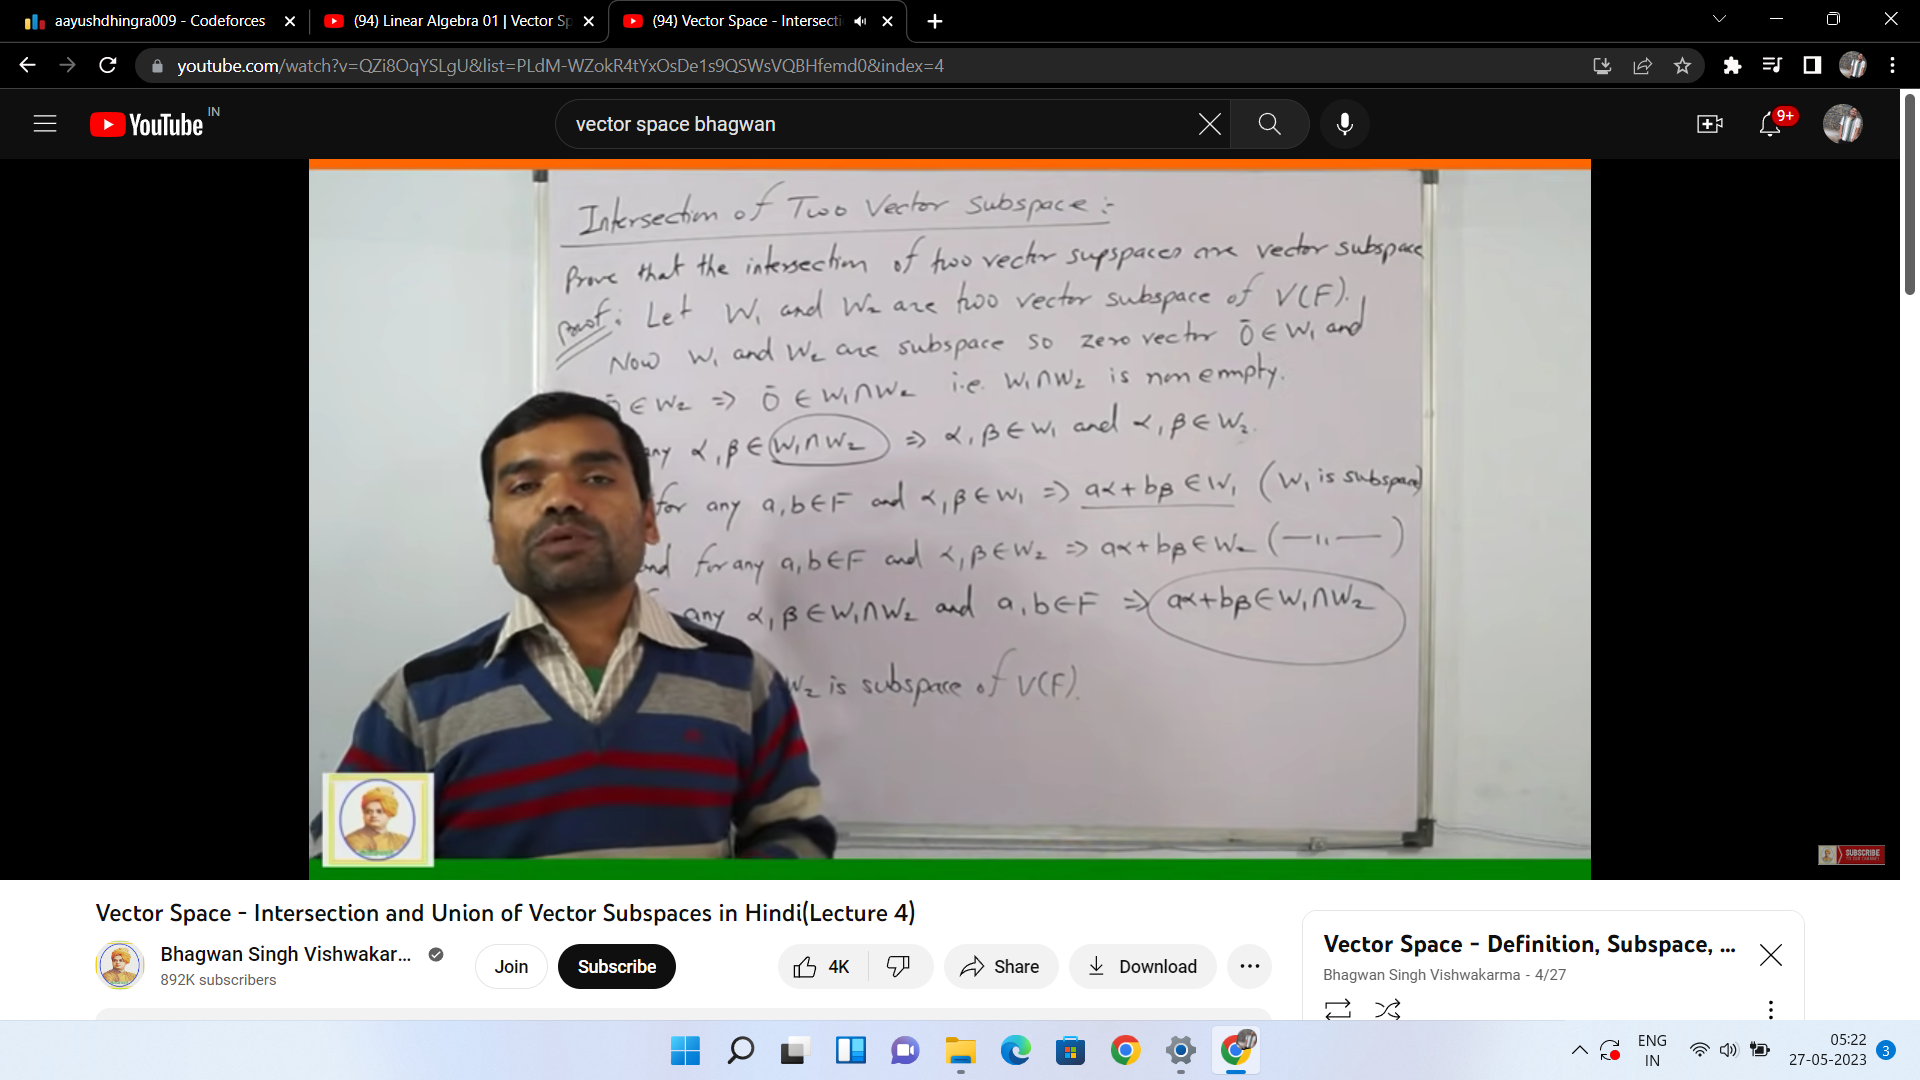 aayushdhingra009 - Codeforces
(94) Linear Algebra 01 | Vector Sp
(94) Vector Space - Intersecti
youtube.com/watch?v=QZi8OqYSLgU&list=PLdM-WZokR4tYxOsDe1s9QSWsVQBHfemd0&index=4
YouTube IN
vector space bhagwan
9+
Intersection of Two Vector Subspace :-
Prove that the intersection of two vector supspaces are vector subspace
Proof : Let W₁ and W₂ are two vector subspace of V(F).
Now W₁ and W₂ are subspace so zero vector 0̄ ∈ W₁ and
0̄ ∈ W₂ ⇒ 0̄ ∈ W₁∩W₂ i.e. W₁∩W₂ is non empty.
any α, β ∈ W₁∩W₂ ⇒ α, β ∈ W₁ and α, β ∈ W₂.
for any a, b ∈ F and α, β ∈ W₁ ⇒ aα + bβ ∈ W₁ (W₁ is subspace)
and for any a, b ∈ F and α, β ∈ W₂ ⇒ aα + bβ ∈ W₂ (—ıı—)
any α, β ∈ W₁∩W₂ and a, b ∈ F ⇒ aα + bβ ∈ W₁∩W₂
W₂ is subspace of V(F).
SUBSCRIBE
Vector Space - Intersection and Union of Vector Subspaces in Hindi(Lecture 4)
Bhagwan Singh Vishwakar...
892K subscribers
Join
Subscribe
4K
Share
Download
Vector Space - Definition, Subspace, ...
Bhagwan Singh Vishwakarma - 4/27
ENG
IN
05:22
27-05-2023
3